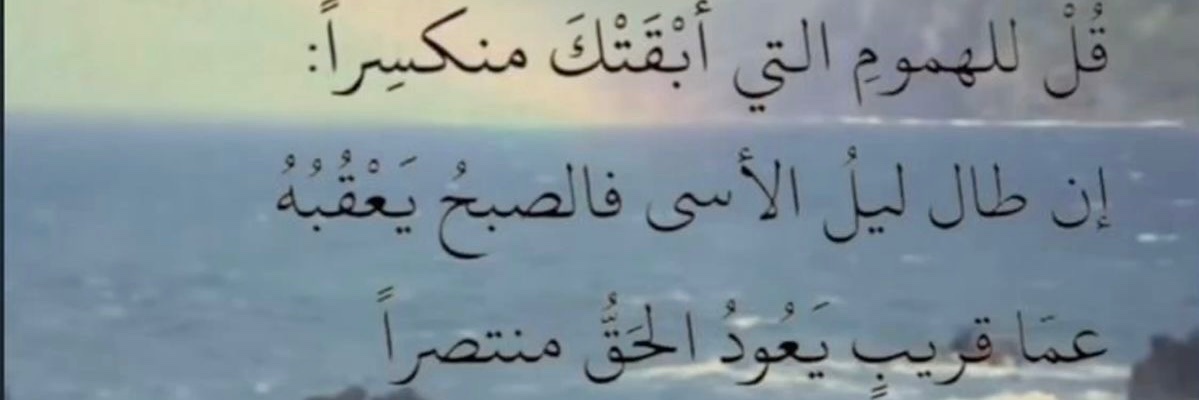 قُلْ للهمومِ التي أبْقَتْكَ منكسِراً:
إن طال ليلُ الأسى فالصبحُ يَعْقُبُهُ
عمَا قريبٍ يَعُودُ الحَقُّ منتصراً